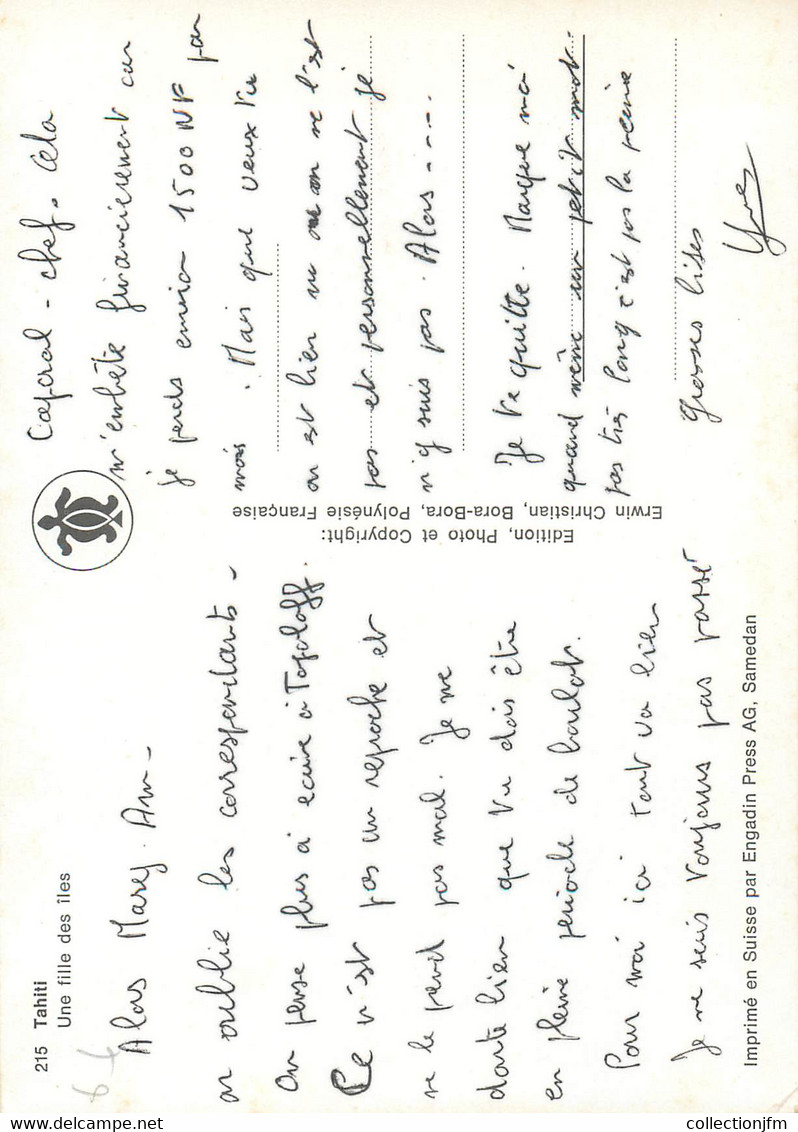 215 Tahiti
Une fille des îles
Alors Mary. Ann -
on oublie les correspondants -
On pense plus à écrire à Topoloff.
Ce n'est pas un reproche et
ne le prend pas mal. Je me
doute bien que tu dois être
en pleine période de boulot.
Pour moi ici tout va bien
Je ne suis toujours pas passé
Imprimé en Suisse par Engadin Press AG, Samedan
Edition, Photo et Copyright:
Erwin Christian, Bora-Bora, Polynésie Française
Caporal - chef. Cela
m'embête financièrement car
je perds environ 1500 NF par
mois. Mais que veux tu
on est bien vu ou on ne l'est
pas et personnellement je
n'y suis pas. Alors ----
Je te quitte. Marque moi
quand même un petit mot.
pas très long c'est pas la peine
grosses bises
Yves
collectionjfm